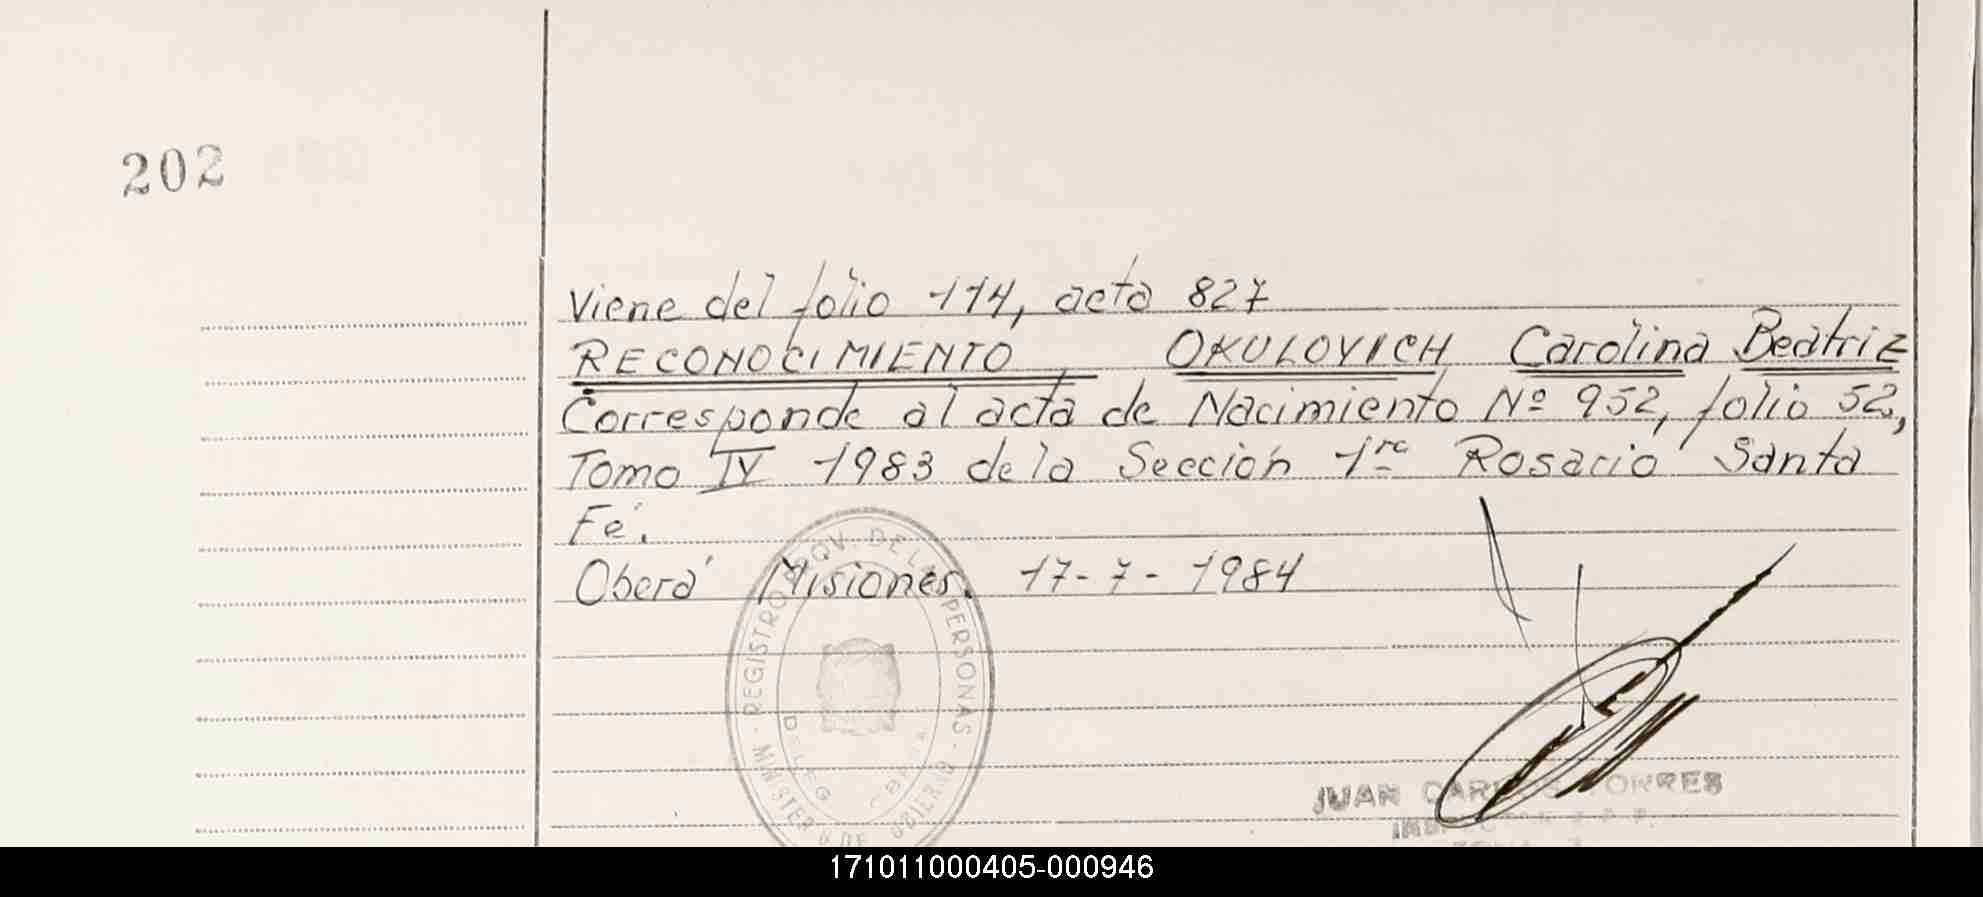 202
Viene del folio 114, acta 827
RECONOCIMIENTO OKULOVICH Carolina Beatriz
Corresponde al acta de Nacimiento Nº 952, folio 52,
Tomo IV 1983 de la Sección 1ra Rosario Santa
Fé.
Oberá Misiones. 17-7-1984
REGISTRO DE LAS PERSONAS
JUAN CARLOS TORRES
171011000405-000946